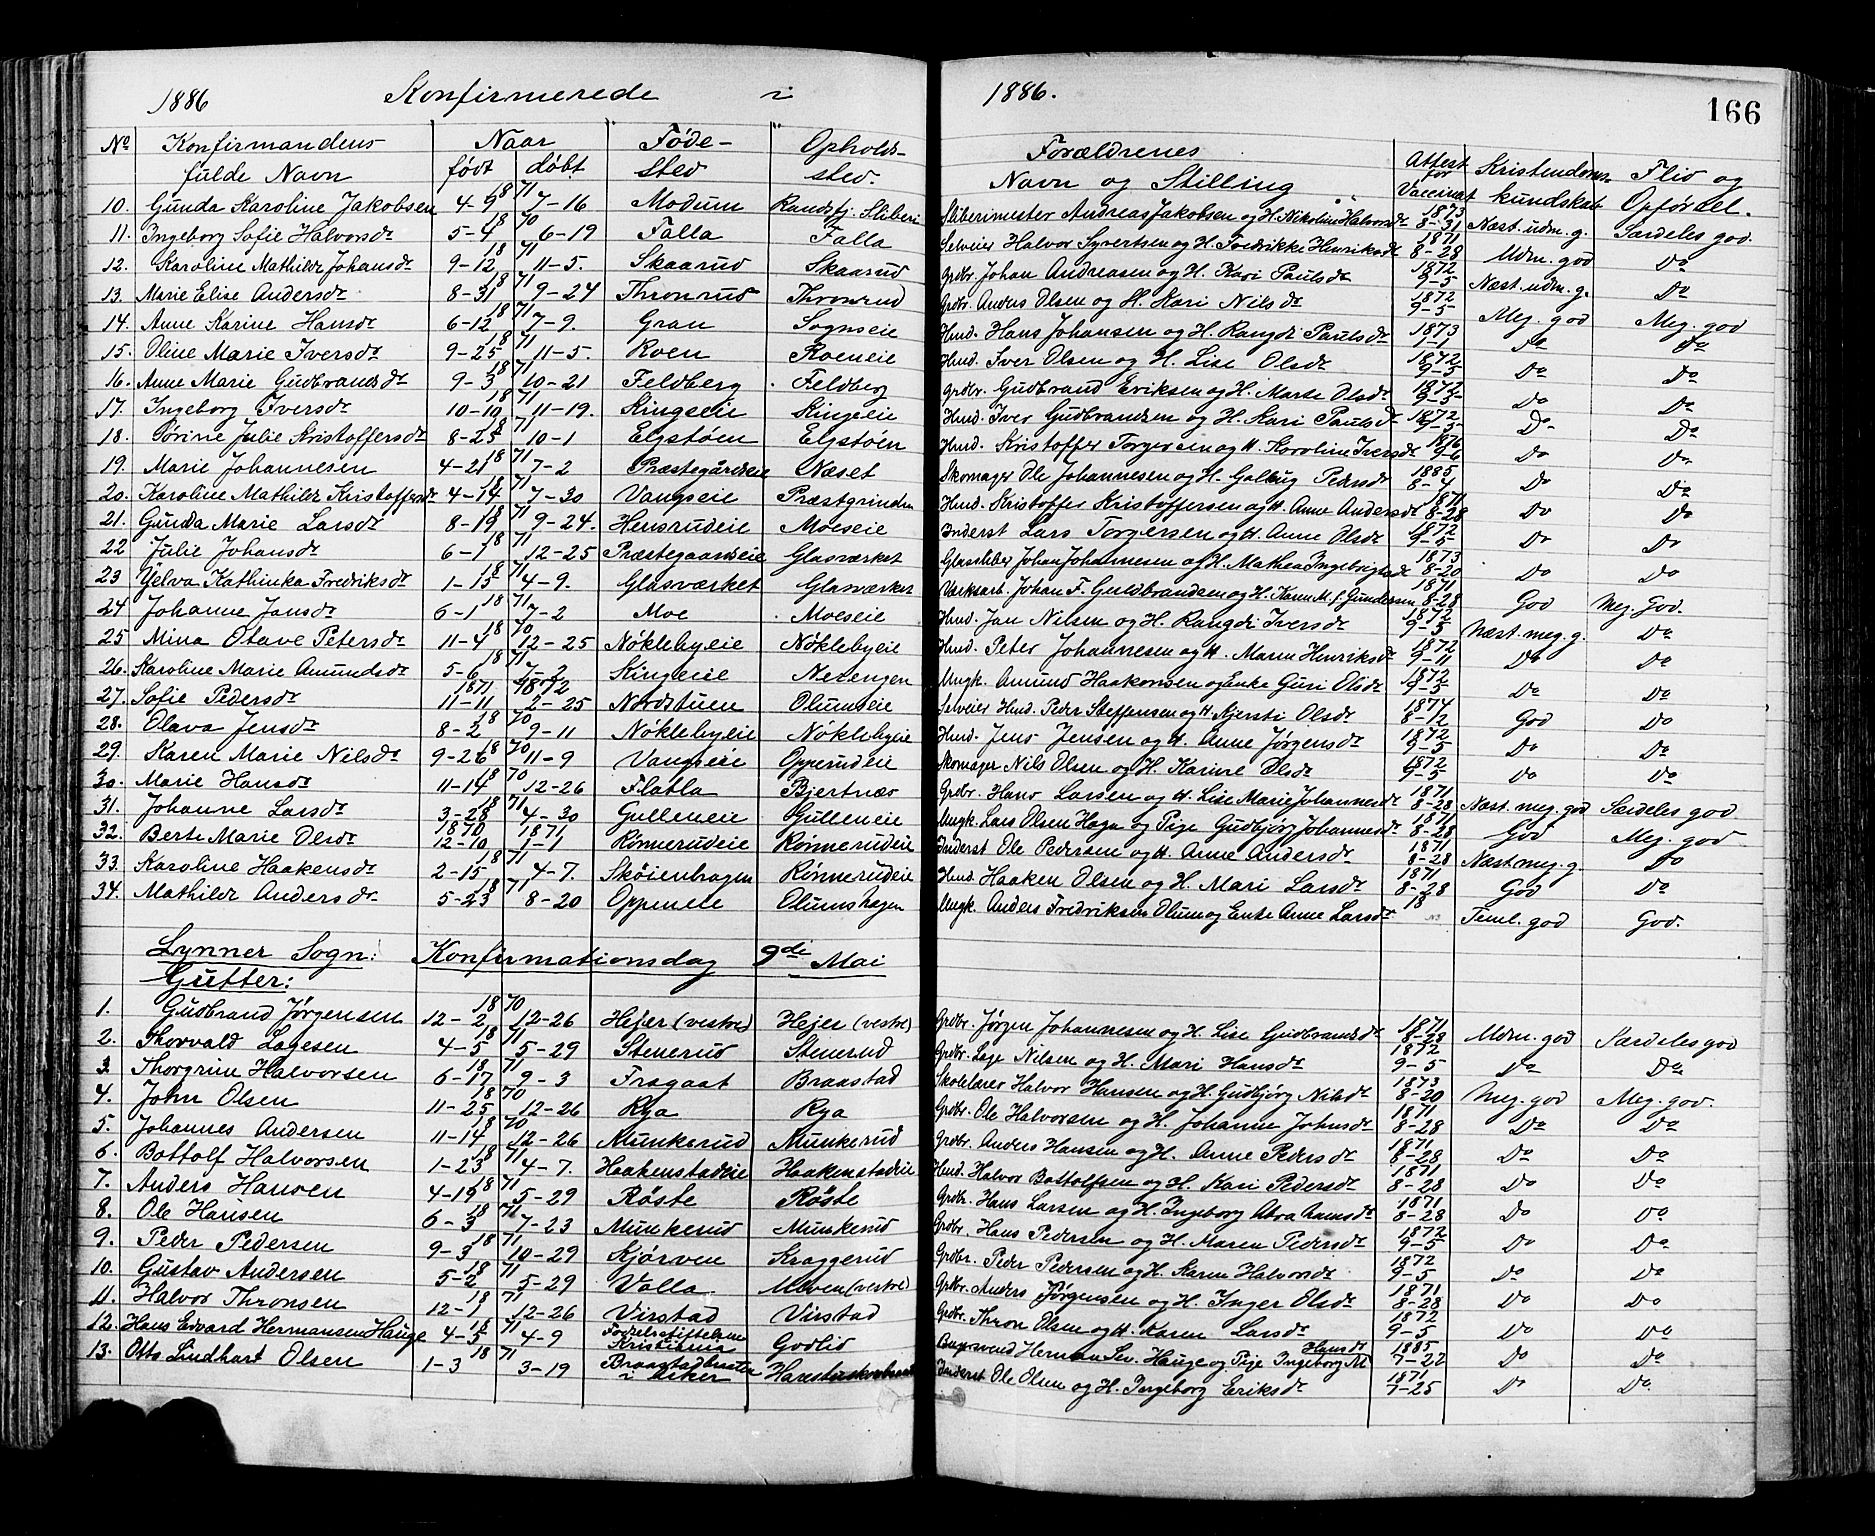 1886 Konfirmerede i 1886. 166
No Konfirmandens fulde Navn Naar født døbt Føde- sted Opholds- sted. Forældrenes Navn og Stilling Attest for Vaccinat Kristendoms- kundskab Flid og Opførsel.
10. Gunda Karoline Jakobsen 4-9 1871 7-16 Modum Randsfj. Sliberi Sliberimester Andreas Jakobsen og H. Nikoline Halvorsdr 1873 8-31 Næst. udm. g. Særdeles god.
11. Ingeborg Sofie Halvorsdr 5-4 1870 6-19 Falla Falla Selveier Halvor Syvertsen og H. Fredrikke Henriksdr 1871 8-28 Udm. god Do
12. Karoline Mathilde Johansdr 9-12 1871 11-5. Skaarud Skaarud Grdbr. Johan Andreasen og H. Kari Paulsdr 1872 9-5 Næst. udm. g. Do
13. Marie Elise Andersdr 8-31 1871 9-24 Thronrud Thronrud Grdbr. Anders Olsen og H. Kari Nilsdr 1872 9-5 Meg. god Meg. god
14. Anne Karine Hansdr 6-12 1871 7-9. Gran Sognseie Hmd. Hans Johansen og H. Rangdi Paulsdr 1873 Do Do
15. Oline Marie Iversdr 9-25 1871 11-5. Roen Roeneie Hmd. Iver Olsen og H. Lise Olsdr 1872 9-5 Do Do
16. Anne Marie Gudbrandsdr 9-3 1871 10-21 Feldberg Feldberg Grdbr. Gudbrand Eriksen og H. Marte Olsdr 1872 9-5- Do Do
17. Ingeborg Iversdr 10-10 1871 11-19. Kingseie Kingseie Hmd. Iver Gudbrandsen og H. Kari Paulsdr 1872 9-5- Do Do
18. Tørine Julie Kristoffersdr 8-25 1871 10-1 Elgstøen Elgstøen Hmd. Kristoffer Torgersen og H. Karoline Iversdr 1876 9-6 Do Do
19. Marie Johannesen 4-21 1871 7-2 Præstegårdseie Næset Skomager Ole Johannesen og H. Gollaug Pedersdr 1885 8-4 Do Do
20. Karoline Mathilde Kristoffersdr 4-14 1871 7-30 Vangseie Præstgrinden Hmd. Kristoffer Kristoffersen og H. Anne Andersdr 1871 8-28 Do Do
21. Gunda Marie Larsdr 8-19 1871 9-24. Hensrudeie Moeseie Inderst Lars Torgersen og H. Anne Olsdr 1872 9-5 Do Do
22 Julie Johansdr 6-1 1871 12-25 Præstegaardseie Glasværket Glassliber Johan Johannesen og H. Mathea Ingebrigtsdr 1873 8-20 Do Do
23 Yelva Kathinka Fredriksdr 1-15 1871 4-9. Glasværket Glasværket Værksarb. Johan F. Guldbrandsen og H. Karen M. f. Gundersen 1871 8-28 God Meg. God.
24 Johanne Jansdr 6-1 1871 7-2 Moe Moeseie Hmd. Jan Nilsen og H. Rangdi Iversdr 1872 9-5 Næst. meg. g. Do
25 Mina Otave Petersdr 11-4 1870 12-25 Nøklebyeie Nøklebyeie Hmd. Peter Johannesen og H. Maren Henriksdr 1872 9-11 Do Do
26. Karoline Marie Amundsdr 5-6 1871 7-2 Kingseie Netengen Ungk. Amund Haakonsen og Enke Guri Olsdr 1872 9-5 Do Do
27. Sofie Pedersdr 1871 11-11 1872 2-25 Nordstuen Olumseie Selveier Hmd. Peder Steffensen og H. Kjersti Olsdr 1874 8-12 God Do
28. Olava Jensdr 8-2 1870 9-11 Nøklebyeie Nøklebyeie Hmd. Jens Jensen og H. Anne Jørgensdr 1872 9-5 Do Do
29. Karen Marie Nilsdr 9-26 1870 11-9 Vangseie Opperudeie Skomager Nils Olsen og H. Karine Olsdr 1872 9-5 Do Do
30. Marie Hansdr 11-14 1870 12-26 Flatla Bjertnæs Grdbr. Hans Larsen og H. Lise Marie Johannesdr 1871 8-28 Næst. meg. god Særdeles god
31. Johanne Larsdr 3-28 1871 4-30 Gulleneie Gulleneie Ungk. Lars Olsen Hagn og Pige Gudbjørg Johannesdr 1871 8-28 God Meg. god
32. Berte Marie Olsdr 1870 12-10 1871 1-1 Rønnerudeie Rønnerudeie Inderst Ole Pedersen og H. Anne Andersdr 1871 8-28 Næst. meg. g. Do
33. Karoline Haakensdr 2-15 1871 4-7. Skøienhagen Rønnerudeie Hmd. Haaken Olsen og H. Mari Larsdr 1871 8-28 God Do
34. Mathilde Andersdr 5-23 1871 8-20 Oppeneie Olumshagen Ungk. Anders Fredriksen Olum og Enke Anne Larsdr 18 Teml. god God.
Lynner Sogn: Konfirmationsdag 9de Mai
Gutter:
1. Gudbrand Jørgensen 12-2 1870 12-26 Hejer (vestre) Hejer (vestre) Grdbr. Jørgen Johannesen og H. Lise Gudbrandsdr 1871 8-28 Udm. god Særdeles god
2. Thorvald Lagesen 4-5 1871 5-29 Stenerud Stenerud Grdbr. Lage Nilsen og H. Mari Hansdr 1872 9-5 Do Do
3. Thorgrim Halvorsen 6-17 1871 9-3 Fragaat Braastad Skolelærer Halvor Hansen og H. Gudbjørg Nilsdr 1873 8-20 Meg. god Meg. god.
4. John Olsen 11-25 1870 12-26 Rya Rya Grdbr. Ole Halvorsen og H. Johanne Johnsdr 1871 8-28 Do Do
5. Johannes Andersen 11-14 1870 12-26 Munkerud Munkerud Grdbr. Anders Hansen og H. Anne Pedersdr 1871 8-28 Do Do
6. Bottolf Halvorsen 1-23 1871 4-7. Haakenstadeie Haakenstadeie Hmd. Halvor Bottolfsen og H. Kari Pedersdr 1871 8-28 Do Do
7. Anders Hansen 4-19 1871 5-29 Røste Røste Grdbr. Hans Larsen og H. Ingeborg Abrahamsdr 1871 8-28 Do Do
8. Ole Hansen 6-3 1871 7-23 Munkerud Munkerud Grdbr. Hans Pedersen og H. Maren Pedersdr 1872 9-5 Do Do
9. Peder Pedersen 9-3 1871 10-29 Kjørven Kraggerud Grdbr. Peder Pedersen og H. Karen Halvorsdr 1872 9-5 Do Do
10. Gustav Andersen 5-2 1871 5-29 Volla Moen (vestre) Grdbr. Anders Jørgensen og H. Inger Olsdr 1871 8-28 Do Do
11. Halvor Thronsen 12-1 1871 12-26 Virstad Virstad Grdbr. Thron Olsen og H. Karen Larsdr 1872 9-5 Do Do
12. Hans Edvard Hermansen Hauge 4-5 1871 4-9 Fødselsstiftelsen Kristiania Godlid Herman Sev. Hauge og Pige Ingeborg M. Hansdr 1885 7-22 Do Do
13. Otto Lindhart Olsen 1-3 1871 3-19 i Asker Inderst Ole Olsen og H. Ingeborg Eriksdr 1871 7-25 Do Do